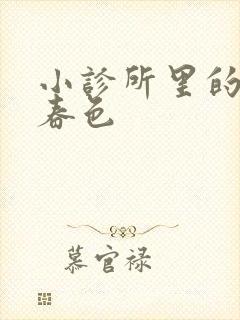 小診所里的
春色
慕官禄